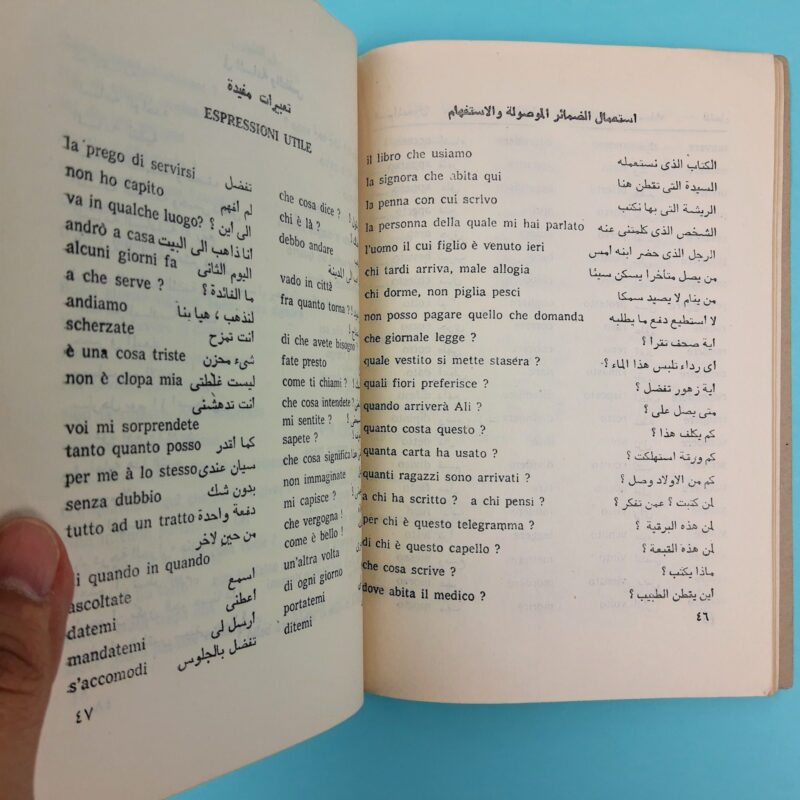 استعمال الضمائر الموصولة والاستفهام
il libro che usiamo الكتاب الذى نستعمله
la signora che abita qui السيدة التى تقطن هنا
la penna con cui scrivo الريشة التى بها نكتب
la personna della quale mi hai parlato الشخص الذى كلمتنى عنه
l'uomo il cui figlio è venuto ieri الرجل الذى حضر ابنه أمس
chi tardi arriva, male allogia من يصل متأخرا يسكن سيئا
chi dorme, non piglia pesci من ينام لا يصيد سمكا
non posso pagare quello che domanda لا أستطيع دفع ما يطلبه
che giornale legge ? أية صحف تقرأ ؟
quale vestito si mette stasera ? أى رداء نلبس هذا الماء ؟
quali fiori preferisce ? أية زهور تفضل ؟
quando arriverà Ali ? متى يصل على ؟
quanto costa questo ? كم يكلف هذا ؟
quanta carta ha usato ? كم ورقة استهلكت ؟
quanti ragazzi sono arrivati ? كم من الاولاد وصل ؟
a chi ha scritto ? a chi pensi ? لمن كتبت ؟ عمن تفكر ؟
per chi è questo telegramma ? لمن هذه البرقية ؟
di chi è questo capello ? لمن هذه القبعة ؟
che cosa scrive ? ماذا يكتب ؟
dove abita il medico ? أين يقطن الطبيب ؟
٤٦
تعبيرات مفيدة
ESPRESSIONI UTILE
la prego di servirsi تفضل
non ho capito لم أفهم
va in qualche luogo? الى أين ؟
andrò a casa أنا ذاهب الى البيت
alcuni giorni fa اليوم الثانى
a che serve ? ما الفائدة ؟
andiamo لنذهب ، هيا بنا
scherzate أنت تمزح
è una cosa triste شىء محزن
non è clopa mia ليست غلطتى
voi mi sorprendete أنت تدهشنى
tanto quanto posso كما أقدر
per me à lo stesso سيان عندى
senza dubbio بدون شك
tutto ad un tratto دفعة واحدة
i quando in quando من حين لاخر
ascoltate اسمع
datemi أعطنى
mandatemi أرسل لى
s'accomodi تفضل بالجلوس
che cosa dice ?
chi è là ?
debbo andare
vado in città
fra quanto torna ?
di che avete bisogno
fate presto
come ti chiami ?
che cosa intendete
mi sentite ?
sapete ?
che cosa significa
non immaginate
mi capisce ?
che vergogna !
come è bello !
un'altra volta
di ogni giorno
portatemi
ditemi
٤٧